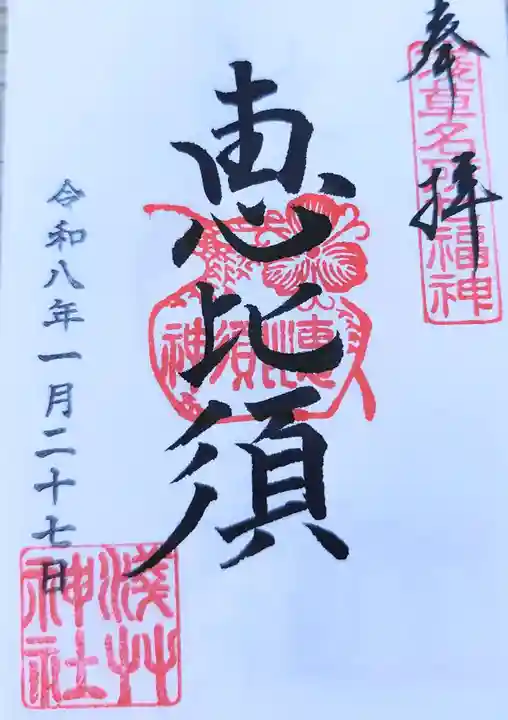 奉拝
浅草名所七福神
恵比須
恵比須神
令和八年一月二十七日
淺草神社